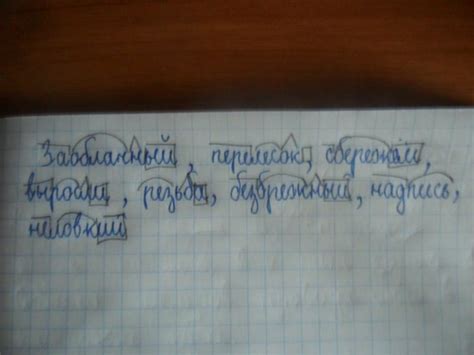 Заоблачный, перелесок, сбережём,
выросли, резьба, безбрежный, надпись,
неловкий